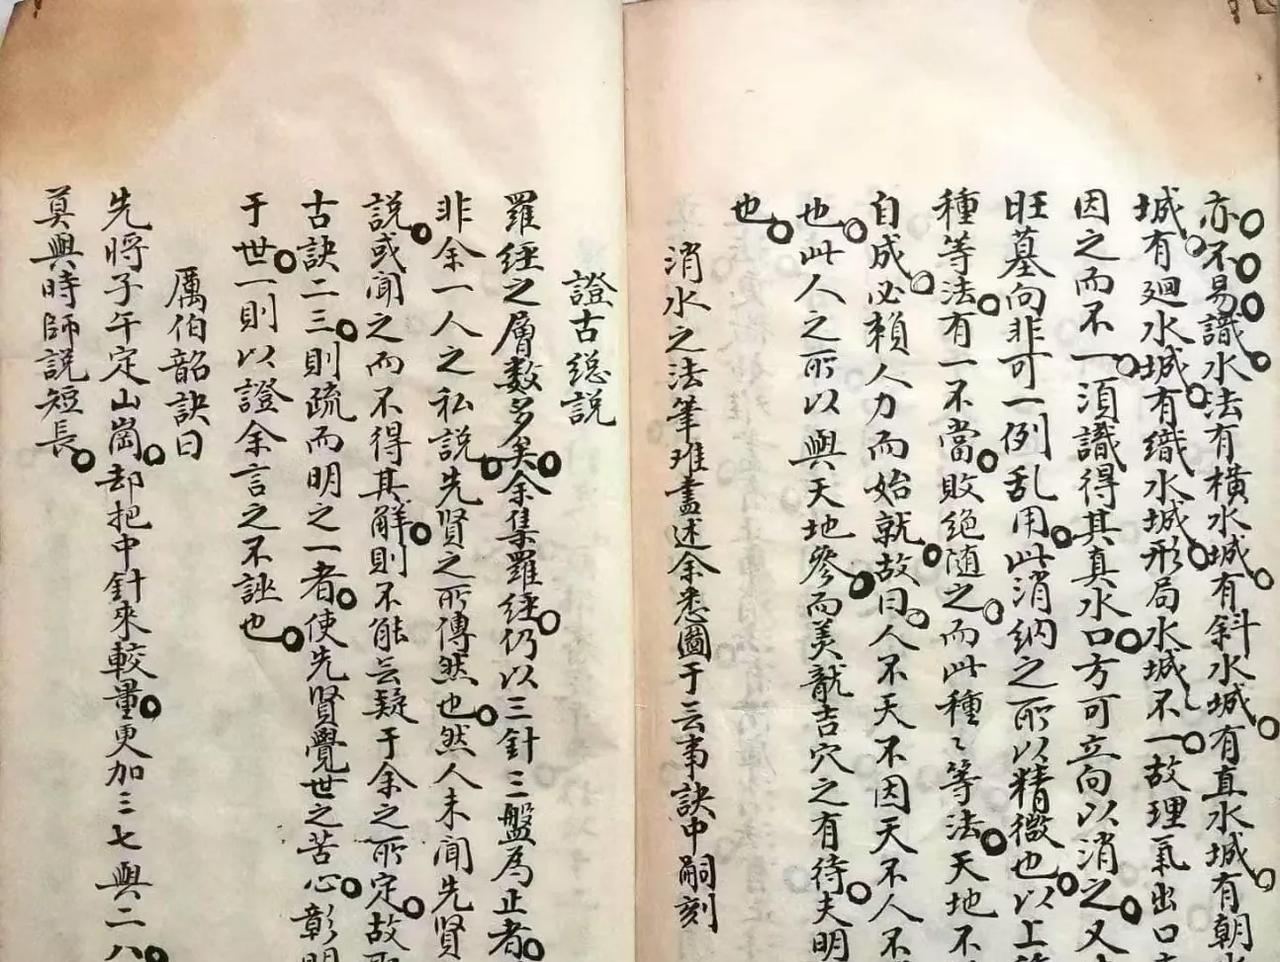 亦不易識水法有橫水城有斜水城有直水城有朝
城有廻水城有織水城形局水城不一故理氣出口
因之而不一須識得其真水口方可立向以消之又
旺墓向非可一例乱用此消納之所以精微也以上
種等法有一不當敗絕随之而此種〻等法天地不
自成必賴人力而始就故曰人不天不因天不人不
也此人之所以與天地參而美龍吉穴之有待夫明
也
消水之法筆难盡述余悉圖于云事訣中嗣刻
證古総説
羅經之層数多矣余集羅經仍以三針三盤為止者
非余一人之私説先賢之所傳然也然人未聞先賢
説或聞之而不得其解則不能云疑于余之所定故
古訣二三則疏而明之一者使先賢覺世之苦心彰明
于世一則以證余言之不誣也
厲伯韶訣曰
先將子午定山崗却把中針來較量更加三七與二八
莫與時師説短長